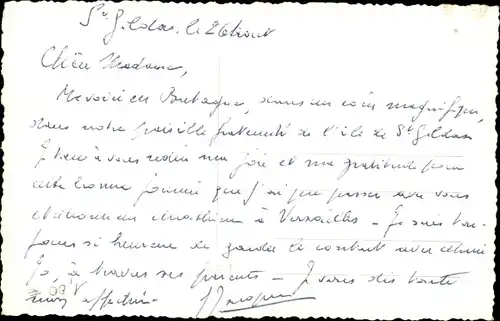 St Gildas, le 26 août
Chère Madame,
Me voici en Bretagne, dans un coin magnifique,
dans notre paisible fraternité de l'île de St Gildas
Je tiens à vous redire ma joie et ma gratitude pour
cette bonne journée que j'ai pu passer avec vous
et Monsieur à Versailles - Je suis tou-
jours si heureuse de garder le contact avec
à travers ses parents - Je vous dis toute
mon affection.